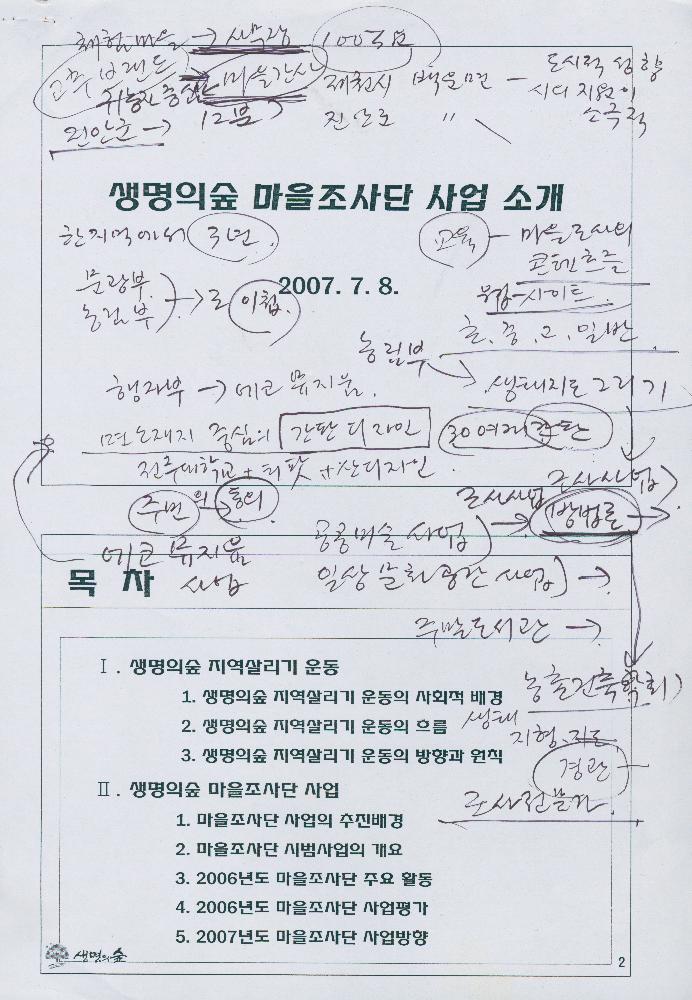 체험마을 → 사무장 100국요
마을간사
귀농자 중심
진안군 → 12분
제천시 백운면 - 도시적 성향
시의 지원이
소극적
진안군 〃
생명의숲 마을조사단 사업 소개
한지역에서 3년.
교육 - 마을조사의
콘텐츠들
2007. 7. 8.
문광부
농림부 → 로 이첩.
웹-사이트.
초. 중. 고. 일반.
농림부
생태지도 그리기
행자부 → 에코 뮤지움.
면소재지 중심의 간판 디자인 30여개 간판
전주대학교 + 티팟 + 산디자인.
주변의 동의
조사사업 → 방법론 →
조사사업
에코 뮤지움
사업
공공미술 사업
일상 문화공간 사업) →
목 차
주말도서관 →
Ⅰ. 생명의숲 지역살리기 운동
농촌건축학회)
1. 생명의숲 지역살리기 운동의 사회적 배경
2. 생명의숲 지역살리기 운동의 흐름
생태
지형.지도
3. 생명의숲 지역살리기 운동의 방향과 원칙
경관
Ⅱ. 생명의숲 마을조사단 사업
조사전문가.
1. 마을조사단 사업의 추진배경
2. 마을조사단 시범사업의 개요
3. 2006년도 마을조사단 주요 활동
4. 2006년도 마을조사단 사업평가
5. 2007년도 마을조사단 사업방향
생명의숲
2